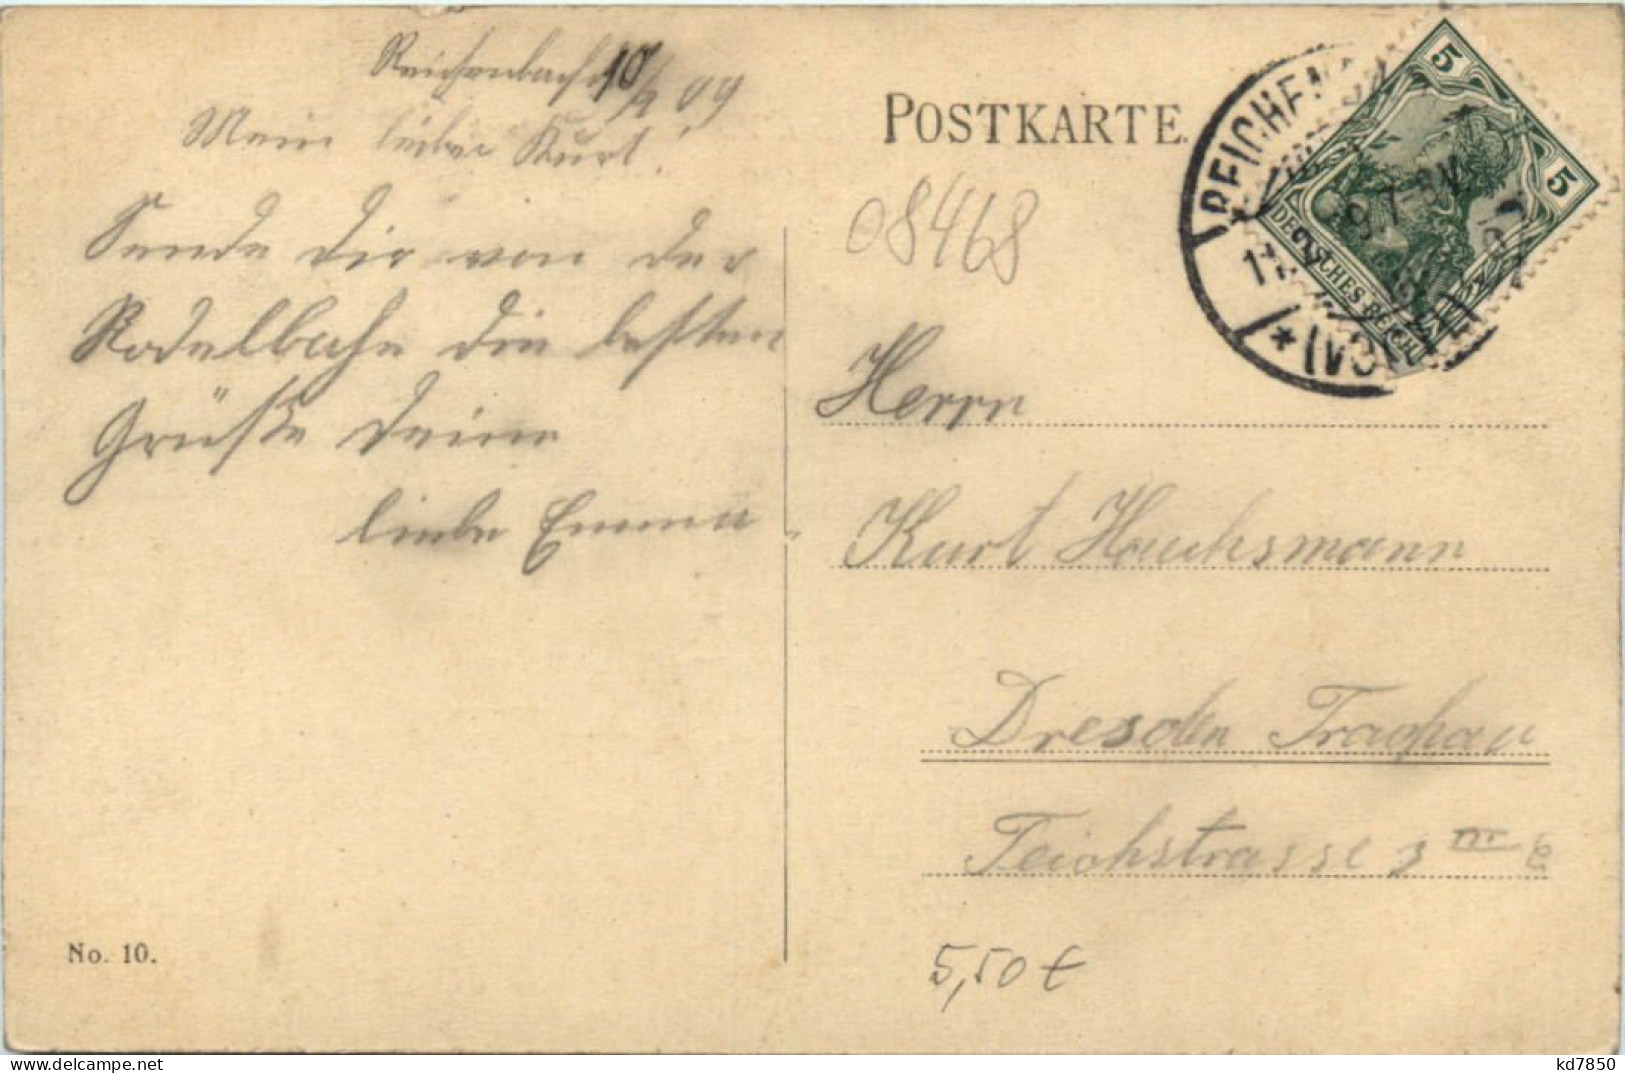 Reichenbach 10/2 09
Mein lieber Kurt!
Sende dir von der
Rodelbahn die besten
Grüße Deine
liebe Emma
No. 10.
POSTKARTE.
08468
REICHENBA
(VOGTL)
9. 7-8V.
5
5
DEUTSCHES REICH
Herrn
Kurt Hauchsmann
Dresden Trachau
Teichstrasse 3 III
5,50 €
kd7850